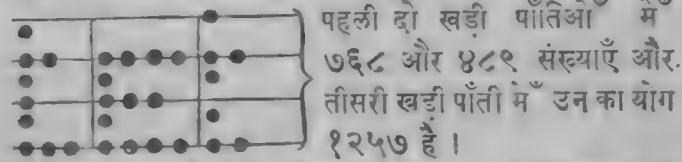 पहली दो खड़ी पाँतिओँ मेँ
७६८ और ४८९ संख्याएँ और.
तीसरी खड़ी पाँती मेँ उन का योग
१२५७ हैं ।